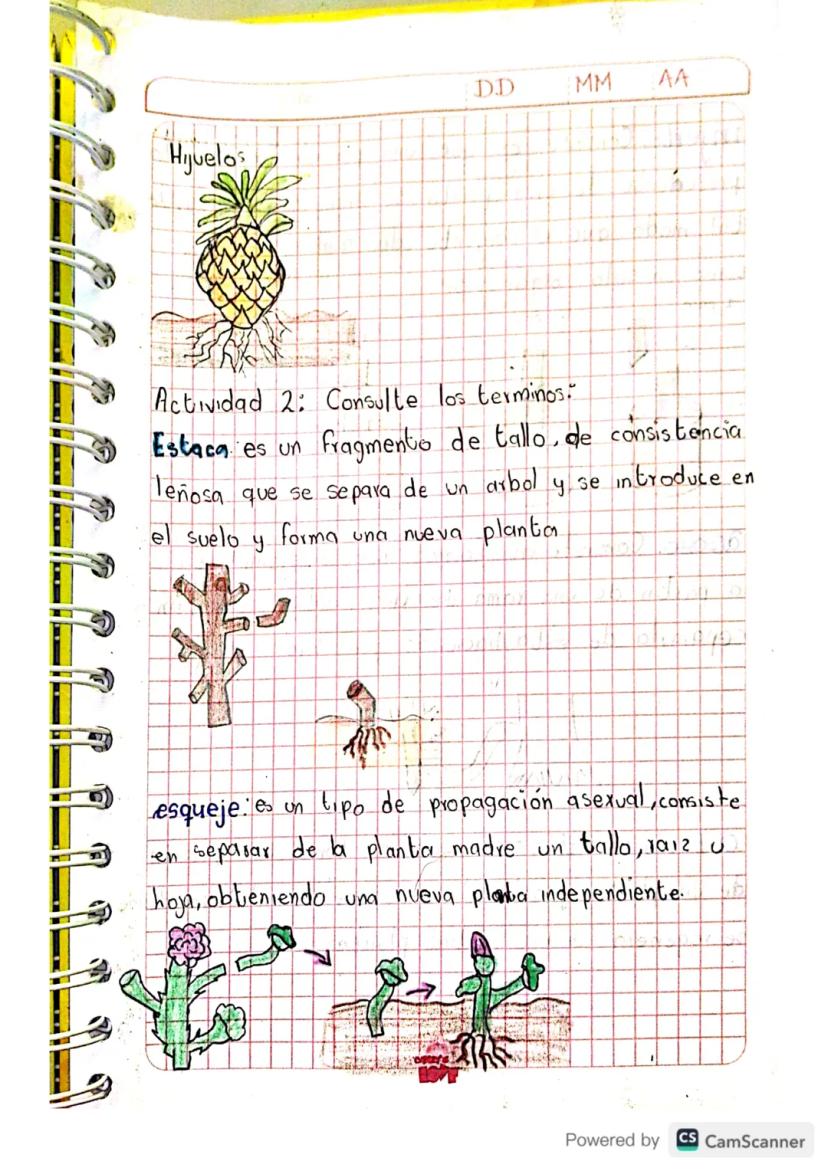 DD MM AA
Hijuelos
Actividad 2: Consulte los terminos:
Estaca: es un fragmento de tallo, de consistencia
leñosa que se separa de un arbol y se introduce en
el suelo y forma una nueva planta
esqueje: es un tipo de propagación asexual, consiste
en separar de la planta madre un tallo, raiz u
hoja, obteniendo una nueva planta independiente.
LOVE
Powered by CS CamScanner